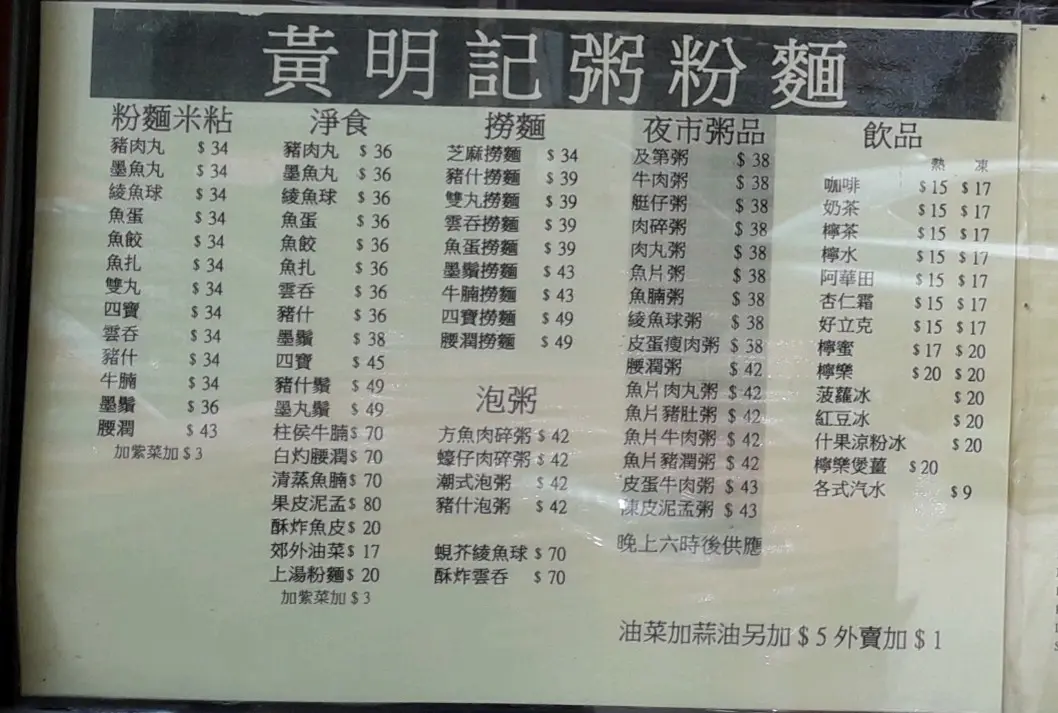 黃明記粥粉麵
粉麵米粘
豬肉丸 $34
墨魚丸 $34
綾魚球 $34
魚蛋 $34
魚餃 $34
魚扎 $34
雙丸 $34
四寶 $34
雲吞 $34
豬什 $34
牛腩 $34
墨鬚 $36
腰潤 $43
加紫菜加 $3
淨食
豬肉丸 $36
墨魚丸 $36
綾魚球 $36
魚蛋 $36
魚餃 $36
魚扎 $36
雲吞 $36
豬什 $36
墨鬚 $38
四寶 $45
豬什鬚 $49
墨丸鬚 $49
柱侯牛腩 $70
白灼腰潤 $70
清蒸魚腩 $70
果皮泥孟 $80
酥炸魚皮 $20
郊外油菜 $17
上湯粉麵 $20
加紫菜加 $3
撈麵
芝麻撈麵 $34
豬什撈麵 $39
雙丸撈麵 $39
雲吞撈麵 $39
魚蛋撈麵 $39
墨鬚撈麵 $43
牛腩撈麵 $43
四寶撈麵 $49
腰潤撈麵 $49
泡粥
方魚肉碎粥 $42
蠔仔肉碎粥 $42
潮式泡粥 $42
豬什泡粥 $42
蜆芥綾魚球 $70
酥炸雲吞 $70
夜市粥品
及第粥 $38
牛肉粥 $38
艇仔粥 $38
肉碎粥 $38
肉丸粥 $38
魚片粥 $38
魚腩粥 $38
綾魚球粥 $38
皮蛋瘦肉粥 $38
腰潤粥 $42
魚片肉丸粥 $42
魚片豬肚粥 $42
魚片牛肉粥 $42
魚片豬潤粥 $42
皮蛋牛肉粥 $43
陳皮泥孟粥 $43
晚上六時後供應
飲品
熱 凍
咖啡 $15 $17
奶茶 $15 $17
檸茶 $15 $17
檸水 $15 $17
阿華田 $15 $17
杏仁霜 $15 $17
好立克 $15 $17
檸蜜 $17 $20
檸樂 $20 $20
菠蘿冰 $20
紅豆冰 $20
什果涼粉冰 $20
檸樂煲薑 $20
各式汽水 $9
油菜加蒜油另加 $5 外賣加 $1